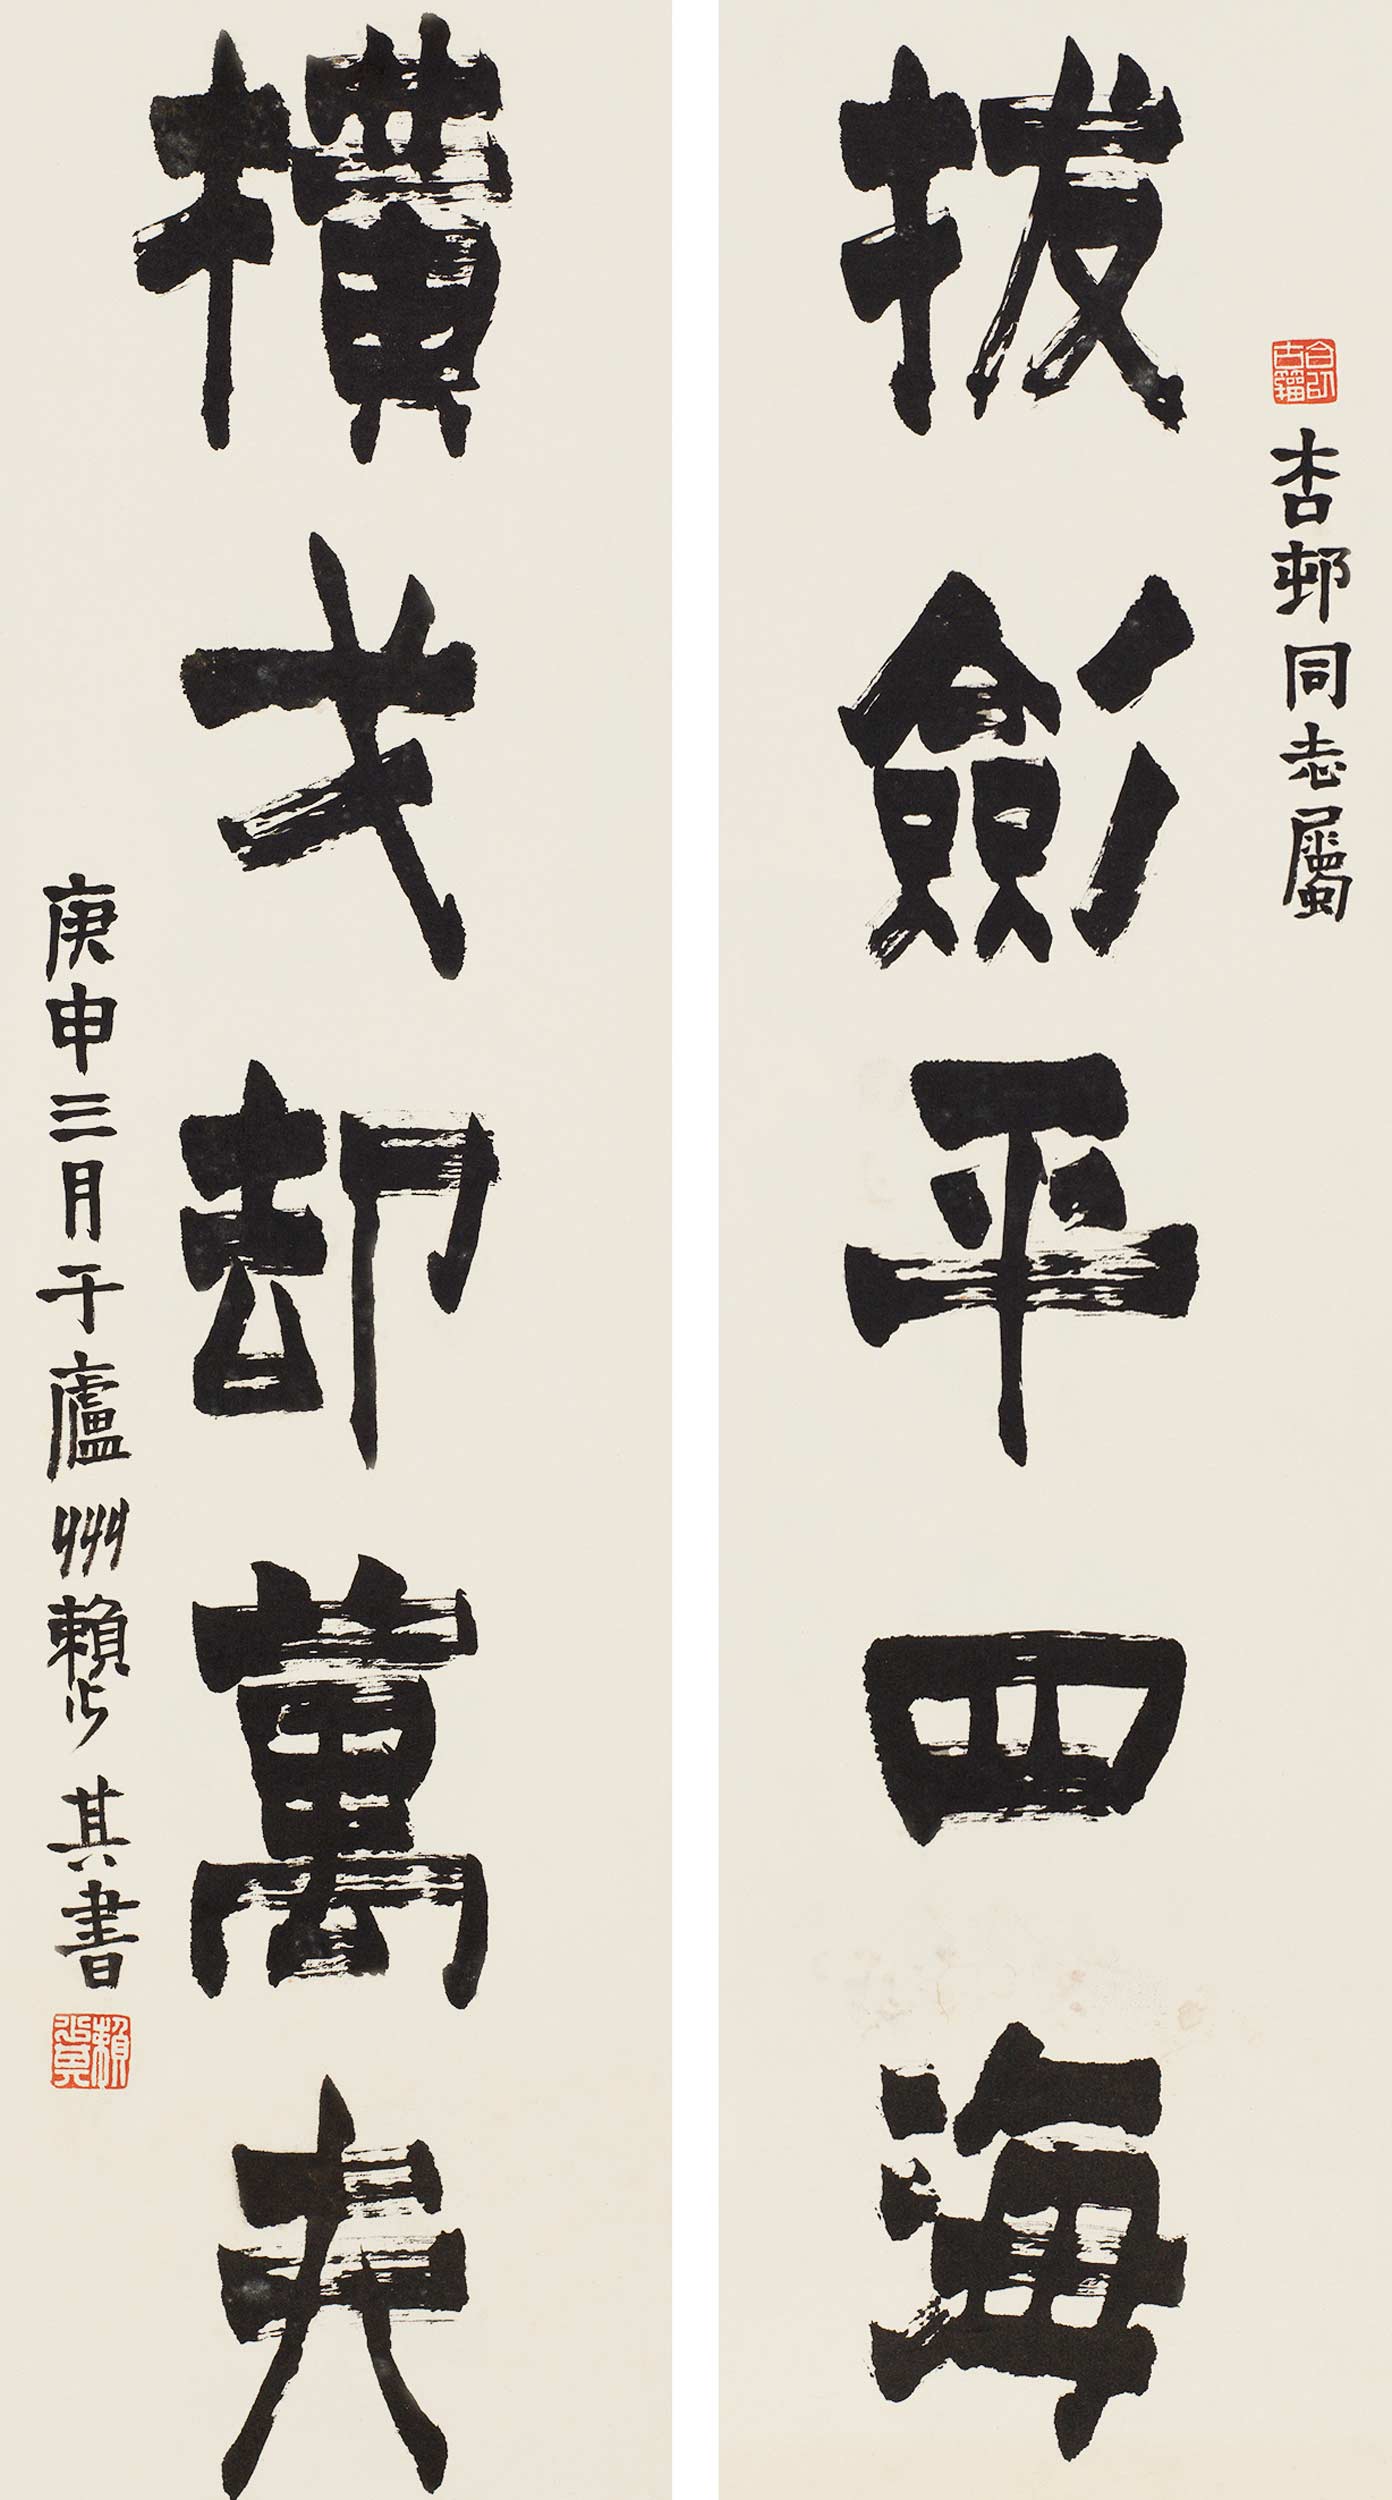 杏邨同志屬
拔劍平四海
橫戈却萬夫
庚申三月于廬州賴少其書
賴少其